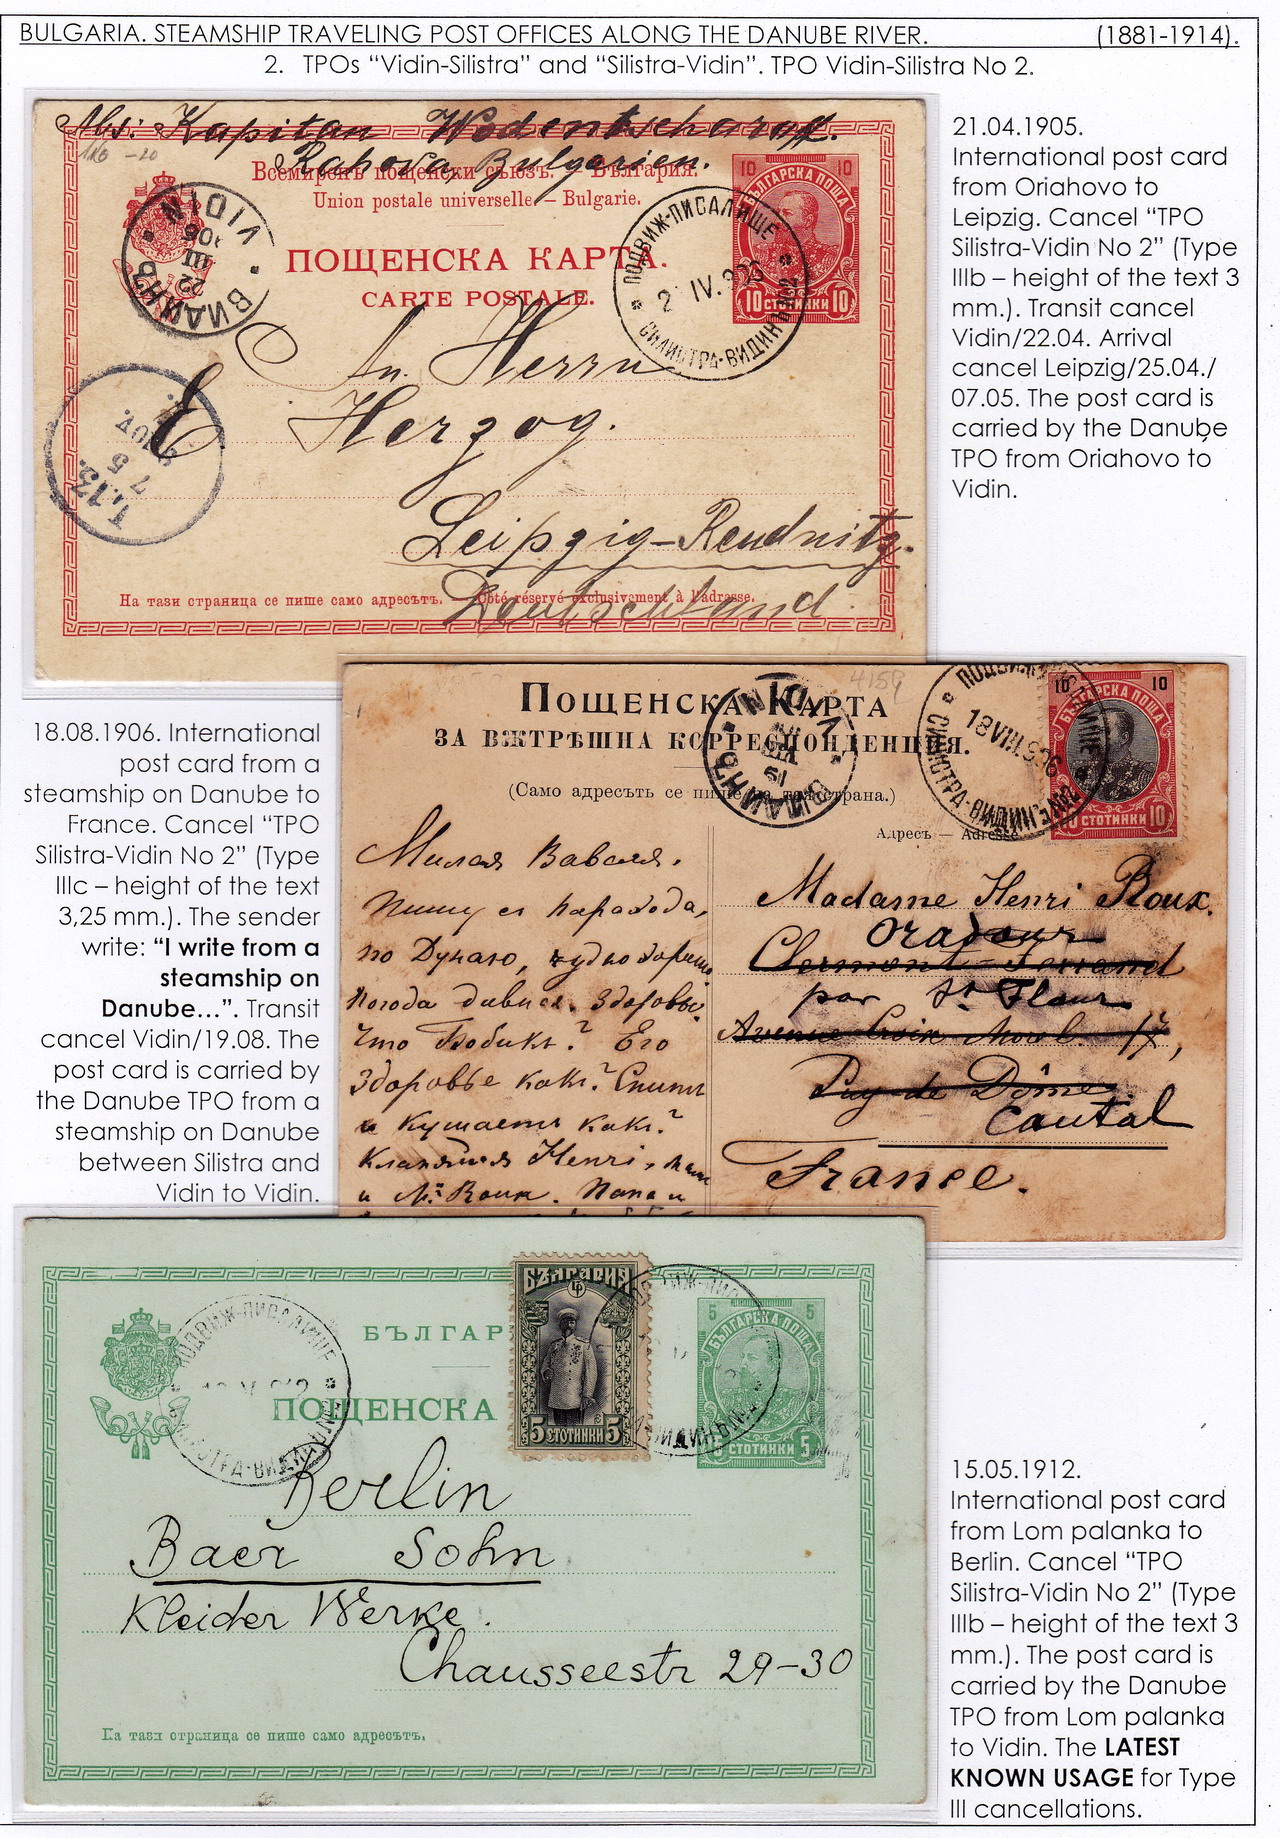 BULGARIA. STEAMSHIP TRAVELING POST OFFICES ALONG THE DANUBE RIVER. (1881-1914).
2. TPOs “Vidin-Silistra” and “Silistra-Vidin”. TPO Vidin-Silistra No 2.
Abs: Kapitan Wodentscharoff.
Rahova Bulgarien.
Всемиренъ пощенски съюзъ. — България.
Union postale universelle. — Bulgarie.
ПОЩЕНСКА КАРТА.
CARTE POSTALE.
10 10
БЪЛГАРСКА ПОЩА
10 СТОТИНКИ 10
VIDIN
22 III
ВИДИНЪ
ПОДВИЖ-ПИСАЛИЩЕ
IV.
СИЛИСТРА-ВИДИНЪ №2
An Herrn
E Herzog.
Leipzig-Reudnitz.
Deutschland.
L.13.
7 5
На тази страница се пише само адресътъ. — Côté réservé exclusivement à l'adresse.
21.04.1905.
International post card
from Oriahovo to
Leipzig. Cancel “TPO
Silistra-Vidin No 2” (Type
IIIb – height of the text 3
mm.). Transit cancel
Vidin/22.04. Arrival
cancel Leipzig/25.04./
07.05. The post card is
carried by the Danube
TPO from Oriahovo to
Vidin.
18.08.1906. International
post card from a
steamship on Danube to
France. Cancel “TPO
Silistra-Vidin No 2” (Type
IIIc – height of the text
3,25 mm.). The sender
write: “I write from a
steamship on
Danube…”. Transit
cancel Vidin/19.08. The
post card is carried by
the Danube TPO from a
steamship on Danube
between Silistra and
Vidin to Vidin.
4159
Пощенска Карта
ЗА ВѪТРѢШНА КОРРЕСПОНДЕНЦИЯ.
(Само адресътъ се пише на тая страна.)
Адресъ — Adresse
VIDIN
ВИДИНЪ
ПОДВИЖ-ПИСАЛИЩЕ
18 VIII.906
СИЛИСТРА-ВИДИНЪ
10 10
БЪЛГАРСКА ПОЩА
10 СТОТИНКИ 10
Милая
Пишу съ парахода,
по Дунаю, чудно хорошо.
Погода дивная. Здоровы.
Что Бобикъ? Его
здоровье какъ? Спитъ
и кушаетъ какъ?
Кланяйся Henri,
и Roux. Папа и
Madame Henri Roux.
Oradour
Clermont-Ferrand
par St Flour
Avenue Croix Morel. 17,
Puy de Dôme
Cantal
France.
БЪЛГАР
ПОЩЕНСКА
БЪЛГАРИЯ
5 СТОТИНКИ 5
5 5
БЪЛГАРСКА ПОЩА
5 СТОТИНКИ 5
ПОДВИЖ-ПИСАЛИЩЕ
Berlin
Baer Sohn
Kleider Werke.
Chausseestr 29-30
На тази страница се пише само адресътъ.
15.05.1912.
International post card
from Lom palanka to
Berlin. Cancel “TPO
Silistra-Vidin No 2” (Type
IIIb – height of the text 3
mm.). The post card is
carried by the Danube
TPO from Lom palanka
to Vidin. The LATEST
KNOWN USAGE for Type
III cancellations.